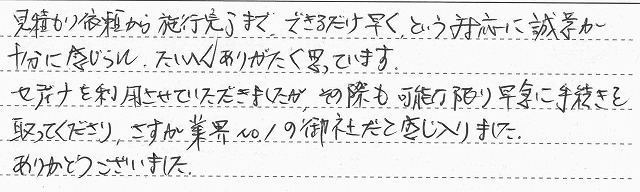 見積もり依頼から施行完了まで、できるだけ早く、という対応に誠意が
十分に感じられ、たいへんありがたく思っています。
セディナを利用させていただきましたが、その際も可能な限り早急に手続きを
取ってくださり、さすが業界No.1の御社だと感じ入りました。
ありがとうございました。